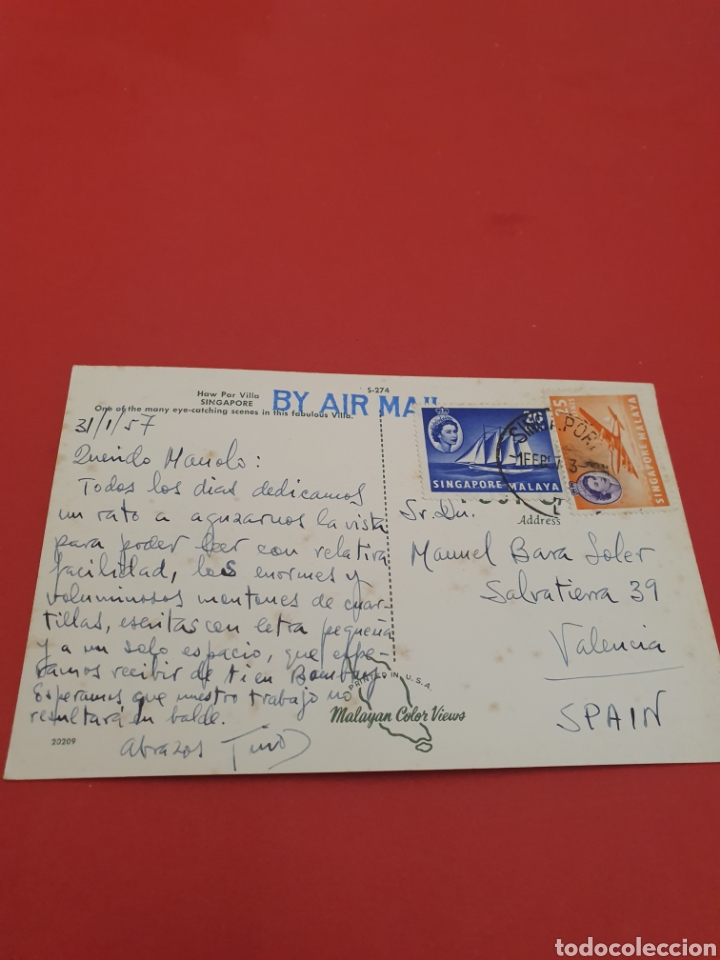 S-274
Haw Par Villa
SINGAPORE
One of the many eye-catching scenes in this fabulous Villa.
BY AIR MAIL
31/1/57
Querido Manolo:
Todos los dias dedicamos
un rato a aguzarnos la vista
para poder leer con relativa
facilidad, los enormes y
voluminosos montones de cuar-
tillas, escritas con letra pequeña
y a un solo espacio, que espe-
ramos recibir de ti en Bombay.
Esperamos que nuestro trabajo no
resultará en balde.
Abrazos
20209
PRINTED IN U.S.A.
Malayan Color Views
20
SINGAPORE·MALAYA
25
SINGAPORE MALAYA
SINGAPORE
Address
Sr. Dn.
Manuel Bara Soler
Salvatierra 39
Valencia
SPAIN
todocoleccion